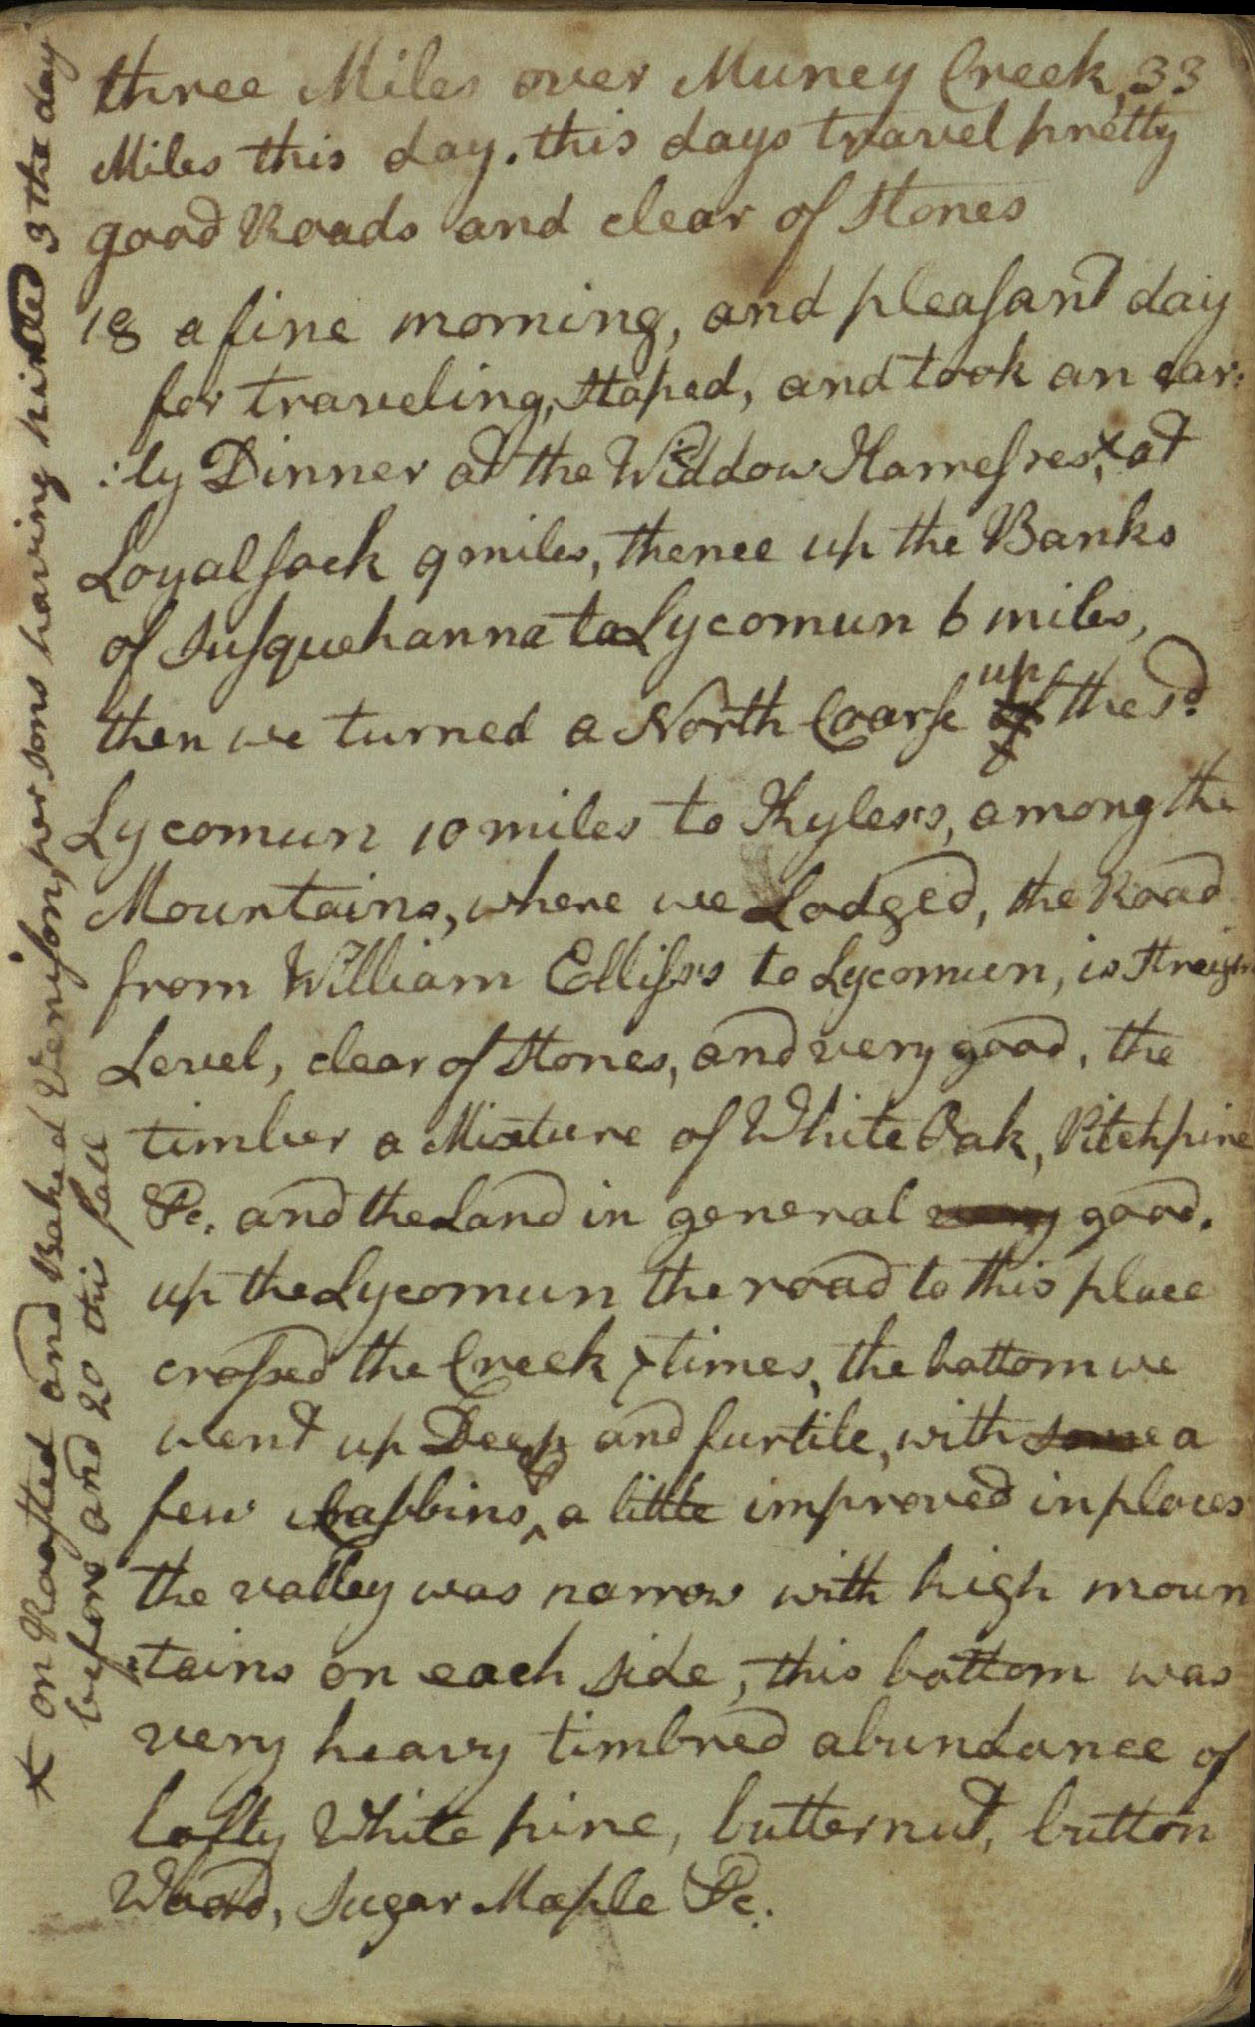 three Miles over Muncy Creek, 33
Miles this day. this days travel pretty
good Roads and clear of Stones
18 a fine morning, and pleasant day
for traveling, Stoped, and took an ear:
:ly Dinner at the Widdow Harresres, x at
Loyalsock 9 miles, thence up the Banks
of Susquehanna to Lycomun 6 miles,
then we turned a North Coarse up of the sd.
Lycomun 10 miles to Kyless, among the
Mountains, where we Lodged, the Road
from William Elliss's to Lycomun, is Streight
Level, clear of Stones, and very good, the
timber a Mixture of White Oak, Pitchpine
&c. and the Land in general very good.
up the Lycomun the road to this place
crossed the Creek 7 times, the bottom we
went up Deep and furtile, with some a
few Cabbins, ^ a little improved in places
the valley was narrow with high moun
:tains on each side, this bottom was
very heavy timbred abundance of
lofty White pine, butternut, button
Wood, Sugar Maple &c.
x on Roasted and Baked Venison, her sons having killed 3 the day
before and 20 this fall